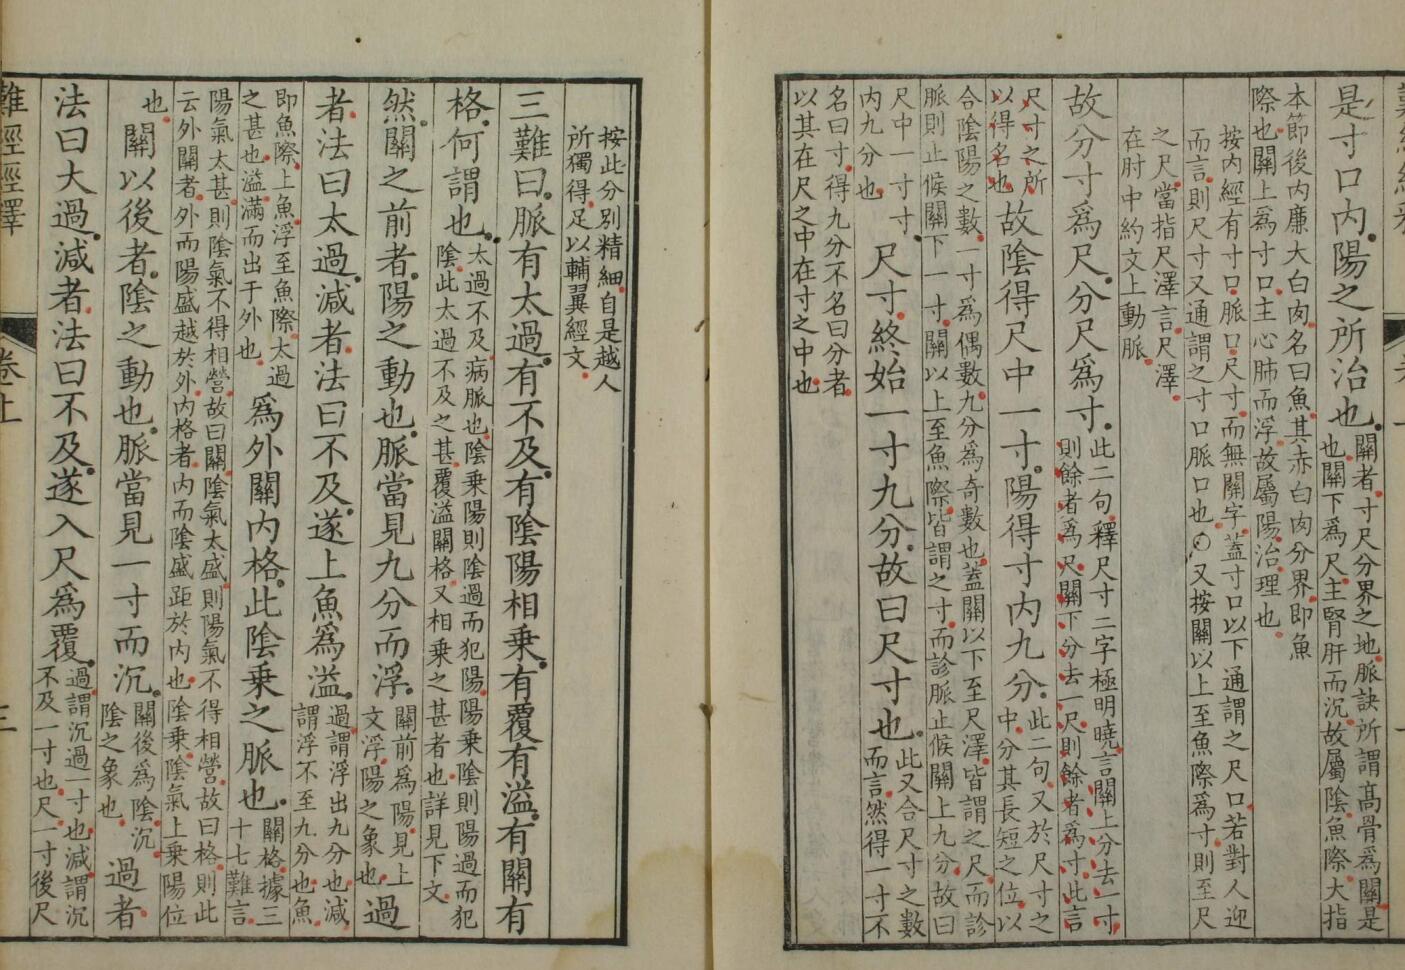 難經經釋
是寸口內陽之所治也關者寸尺分界之地脈訣所謂高骨爲關是
也關下爲尺主腎肝而沉故屬陰魚際大指
本節後內廉大白肉名曰魚其赤白肉分界即魚
際也關上爲寸口主心肺而浮故屬陽治理也
按內經有寸口脈口尺寸而無關字蓋寸口以下通謂之尺口若對人迎
而言則尺寸又通謂之寸口脈口也○又按關以上至魚際爲寸則至尺
之尺當指尺澤言尺澤
在肘中約文上動脈
故分寸爲尺分尺爲寸此二句釋尺寸二字極明曉言關上分去一寸
則餘者爲尺關下分去一尺則餘者爲寸此言
尺寸之所
以得名也故陰得尺中一寸陽得寸內九分此二句又於尺寸之
中分其長短之位以
合陰陽之數一寸爲偶數九分爲奇數也蓋關以下至尺澤皆謂之尺而診
脈則止候關下一寸關以上至魚際皆謂之寸而診脈止候關上九分故曰
尺中一寸寸
內九分也尺寸終始一寸九分故曰尺寸也此又合尺寸之數
而言然得一寸不
名曰寸得九分不名曰分者
以其在尺之中在寸之中也
按此分別精細自是越人
所獨得足以輔翼經文
三難曰脈有太過有不及有陰陽相乘有覆有溢有關有
格何謂也太過不及病脈也陰乘陽則陰過而犯陽陽乘陰則陽過而犯
陰此太過不及之甚覆溢關格又相乘之甚者也詳見下文
然關之前者陽之動也脈當見九分而浮關前爲陽見上
文浮陽之象也過
者法曰太過減者法曰不及遂上魚爲溢過謂浮出九分也減
謂浮不至九分也魚
即魚際上魚浮至魚際太過
之甚也溢滿而出于外也爲外關內格此陰乘之脈也關格據三
十七難言
陽氣太甚則陰氣不得相營故曰關陰氣太盛則陽氣不得相營故曰格則此
云外關者外而陽盛越於外內格者內而陰盛距於內也陰乘陰氣上乘陽位
也關以後者陰之動也脈當見一寸而沉關後爲陰沉
陰之象也過者
法曰大過減者法曰不及遂入尺爲覆過謂沉過一寸也減謂沉
不及一寸也尺一寸後尺
難經經釋
卷上
三